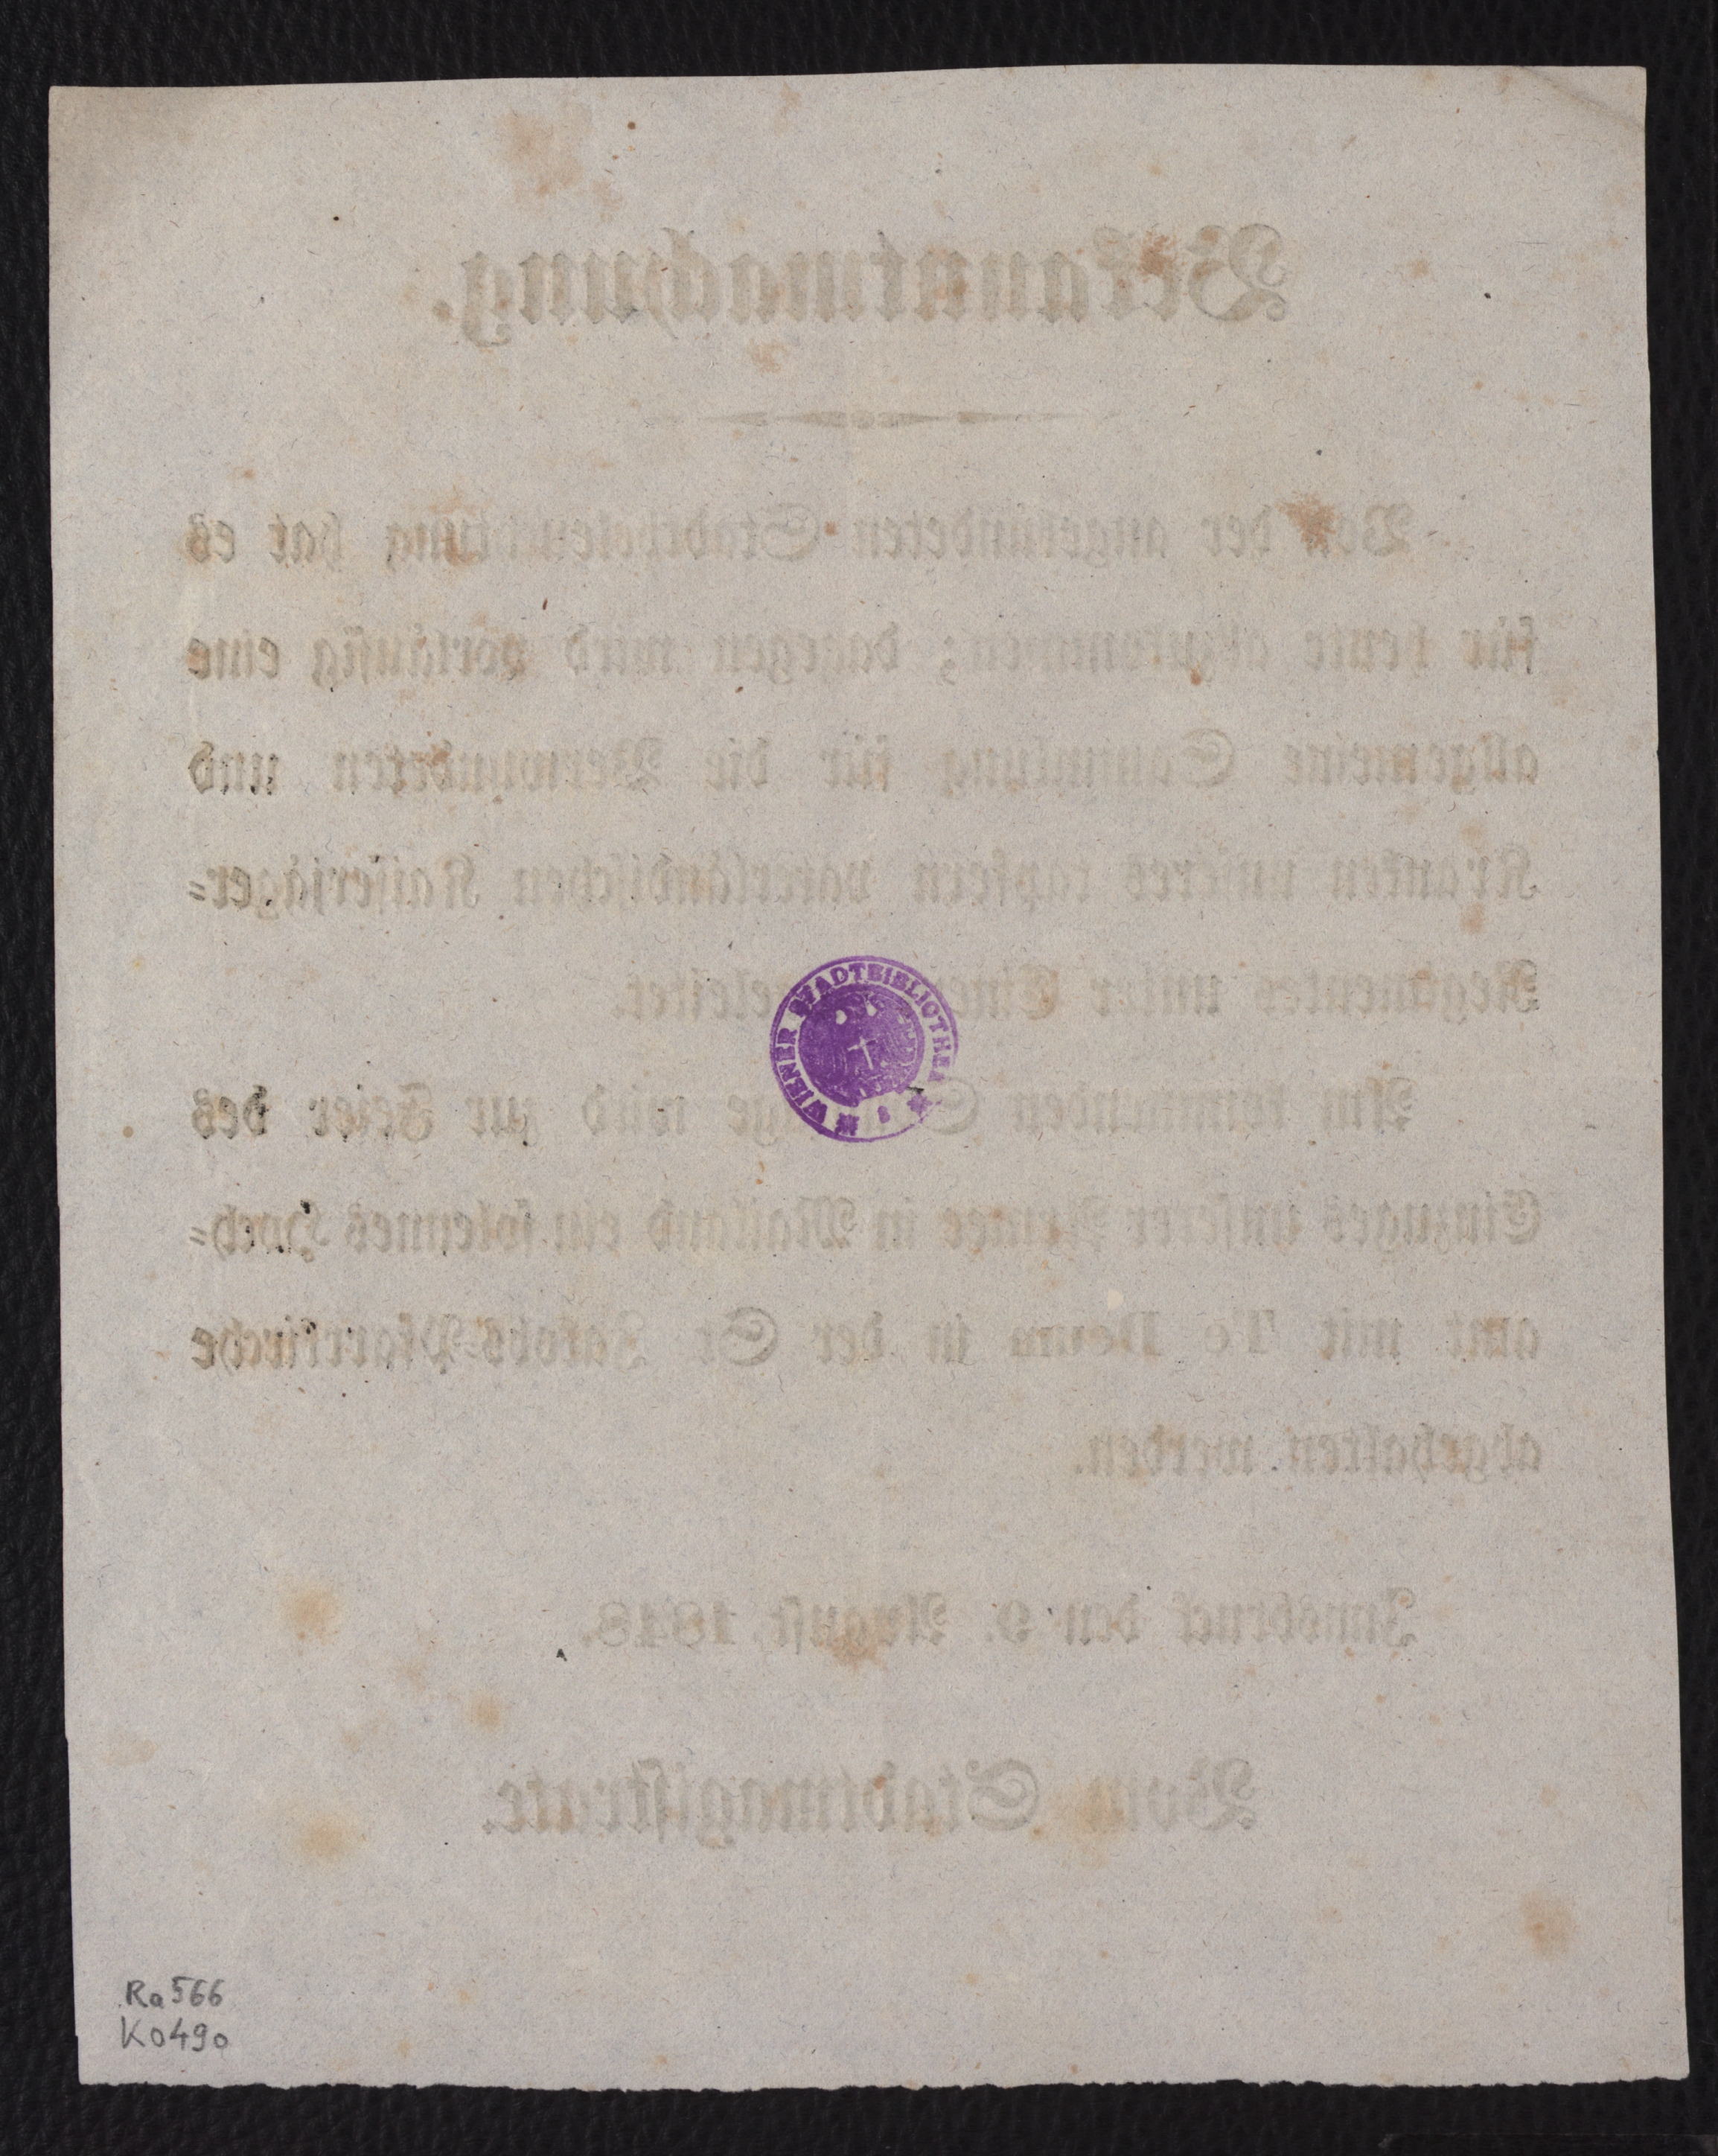 Bekanntmachung.
Von der angekündeten Stadtbeleuchtung hat es
für heute abzukommen; dagegen wird vorläufig eine
allgemeine Sammlung für die Verwundeten und
Kranken unseres tapfern vaterländischen Kaiserjäger=
Regimentes unter Einem eingeleitet.
Am kommenden Sonntage wird zur Feier des
Einzuges unserer Armee in Mailand ein solennes Hoch=
amt mit Te Deum in der St. Jakobs-Pfarrkirche
abgehalten werden.
Innsbruck den 9. August 1848.
Vom Stadtmagistrate.
WIENER STADTBIBLIOTHEK
Ra 566
K0490